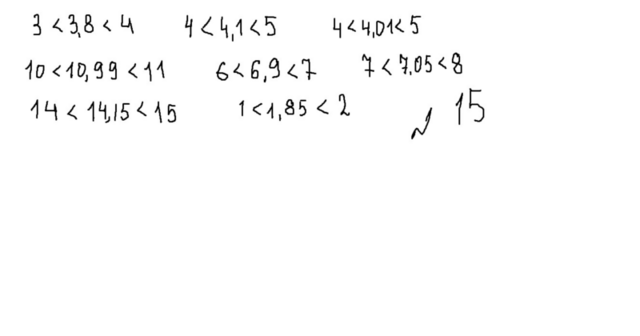 3 < 3,8 < 4 4 < 4,1 < 5 4 < 4,01 < 5
10 < 10,99 < 11 6 < 6,9 < 7 7 < 7,05 < 8
14 < 14,15 < 15 1 < 1,85 < 2
√ 15